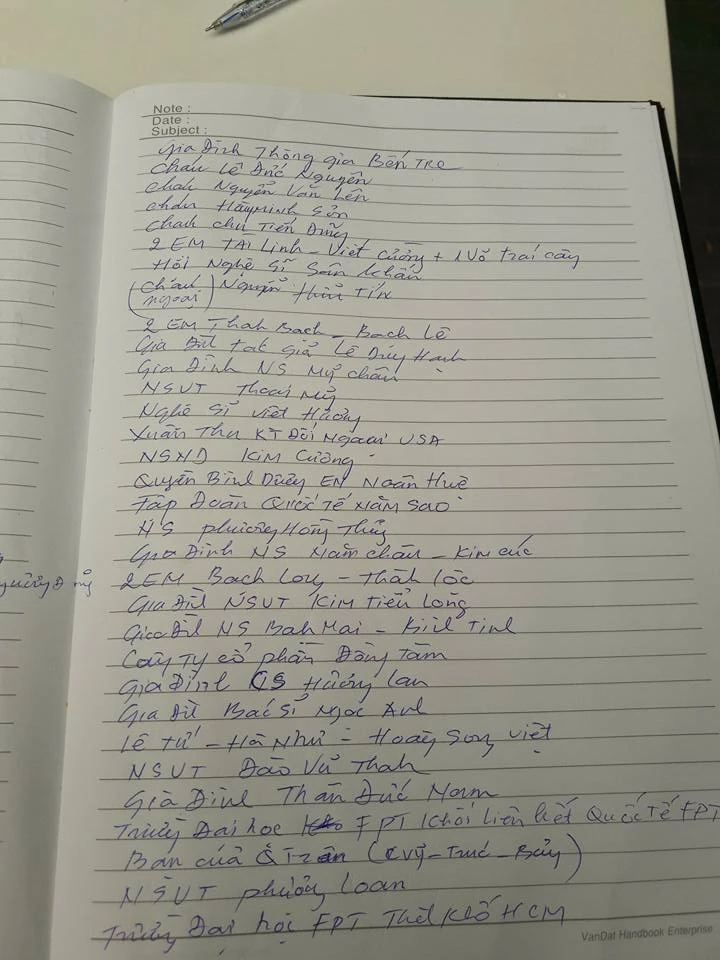 Note :
Date :
Subject :
Gia Đình Thông gia BẾN TRE
cháu Lê Đức Nguyên
cháu Nguyễn Văn Lên
cháu Sơn
cháu chu Tiến Dũng
2 EM TÀI Linh - Việt Cường + 1 Vỏ trái cây
Hội Nghệ Sĩ Sân Khấu
(cháu ngoại) Nguyễn Hữu Tín
2 EM Thah Bạch - Bạch Lê
Gia Đìl tác giả Lê Duy Hạnh
Gia Đình NS Mỹ châu
NSUT Thoại Mỹ
Nghệ Sĩ Việt Hương
Xuân Thu KT Đối Ngoại USA
NSND KIM Cương
Quyền Bình Dũng EM Ngân Huệ
Tập Đoàn Quốc TẾ NĂM SAO
NS phương Hồng Thủy
Gia Đình NS Năm châu - Kim cúc
2 EM Bạch Long - Thàh Lộc
Gia Đìl NSUT KIM TIỂU Long
Gia Đìl NS Bạh Mai - Kiil Tinl
Công Ty cổ phần Đồng Tâm
Gia Đình Hương Lan
Gia Đìl Bác Sĩ Ngọc Anl
Lê Tứ - Hà Như - Hoàng Song Việt
NSUT Đào Vũ Thah
Gia Đình Thân Đức Nam
Trường Đại học FPT Khối Liên kết Quốc Tế FPT
Bạn của Trân
NSUT phượng Loan
Trường Đại học FPT HCM
VanDat Handbook Enterprise